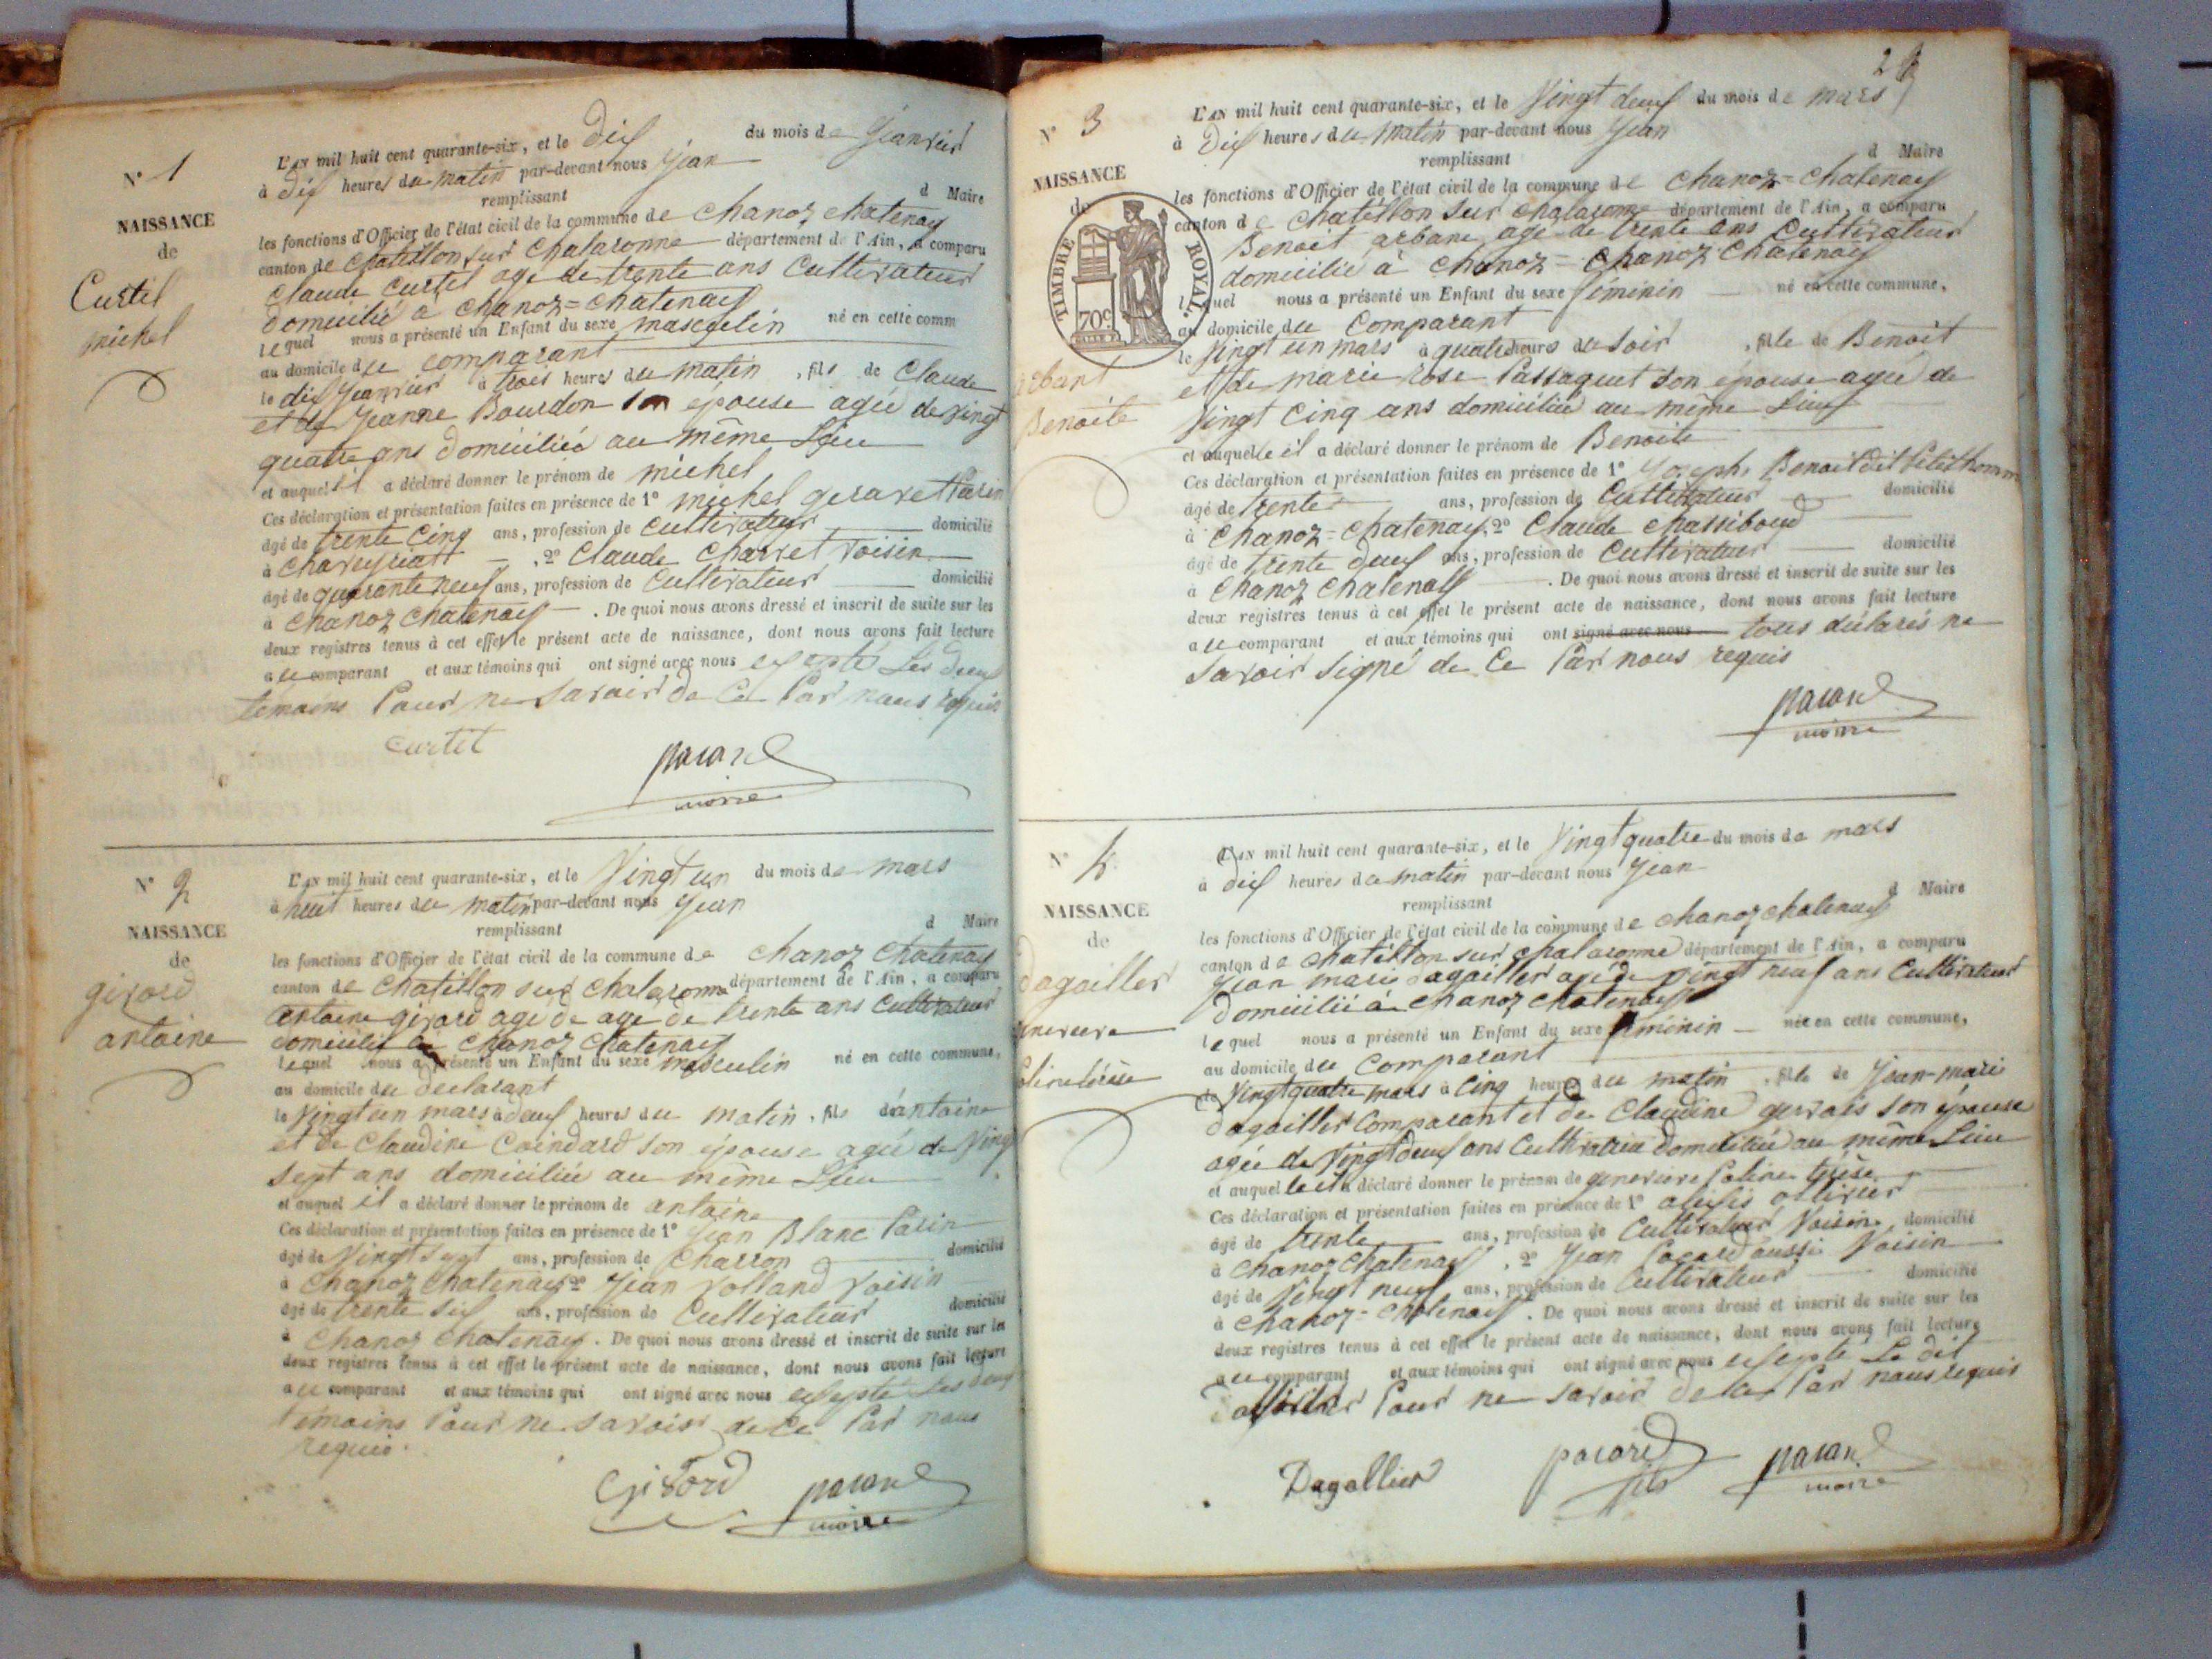 N° 1
NAISSANCE
de
Curtil
michel
L'AN mil huit cent quarante-six, et le dix du mois de Janvier
à dix heures du matin par-devant nous Jean
remplissant d Maire
les fonctions d'Officier de l'état civil de la commune de chanoz chatenay
canton de chatillon sur chalaronne département de l'Ain, a comparu
Claude curtil age de trente ans Cultivateur
domicilié a chanoz=chatenay
lequel nous a présenté un Enfant du sexe masculin né en cette comm
au domicile du comparant
le dix Janvier à trois heures du matin, fils de Claude
et de Jeanne Bourdon son epouse agée de vingt
quatre ans domiciliée au même Lieu
et auquel il a déclaré donner le prénom de michel
Ces déclaration et présentation faites en présence de 1° michel
âgé de trente cinq ans, profession de cultivateur domicilié
à — , 2° Claude Charvet voisin
âgé de quarante neuf ans, profession de Cultivateur domicilié
à chanoz chatenay — . De quoi nous avons dressé et inscrit de suite sur les
deux registres tenus à cet effet le présent acte de naissance, dont nous avons fait lecture
au comparant et aux témoins qui ont signé avec nous exepté Les deux
temoins Pour ne Savoir de Ce Par nous requis
curtil
pacard
maire
N° 2
NAISSANCE
de
girard
antoine
L'AN mil huit cent quarante-six, et le Vingt un du mois de mars
à huit heures du matin par-devant nous Jean
remplissant d Maire
les fonctions d'Officier de l'état civil de la commune de chanoz chatenay
canton de chatillon sur chalaronne département de l'Ain, a comparu
antoine girard age de age de trente ans cultivateur
domicilié a chanoz chatenay
lequel nous a présenté un Enfant du sexe masculin né en cette commune,
au domicile du declarant
le vingt un mars à deux heures du matin, fils d'antoine
et de Claudine Coindard son épouse agée de Vingt
sept ans domiciliée au même Lieu
et auquel il a déclaré donner le prénom de antoine
Ces déclaration et présentation faites en présence de 1° Jean Blanc
âgé de Vingt sept ans, profession de Charron domicilié
à chanoz chatenay 2° Jean volland voisin
âgé de trente six ans, profession de Cultivateur domicilié
à chanoz chatenay. De quoi nous avons dressé et inscrit de suite sur les
deux registres tenus à cet effet le présent acte de naissance, dont nous avons fait lecture
au comparant et aux témoins qui ont signé avec nous exepté Les deux
témoins Pour ne savoir de Ce Par nous
requis.
Girard pacard
maire
N° 3
NAISSANCE
de
TIMBRE ROYAL.
70c
arbant
Benoite
L'AN mil huit cent quarante-six, et le Vingt deux du mois de mars
à Dix heures du matin par-devant nous Jean
remplissant d Maire
les fonctions d'Officier de l'état civil de la commune de chanoz=chatenay
canton de chatillon sur chalaronne département de l'Ain, a comparu
Benoit arbane age de trente ans Cultivateur
domicilié à chanoz= chanoz chatenay
lequel nous a présenté un Enfant du sexe féminin — né en cette commune,
au domicile du Comparant
le Vingt un mars à quatre heures du soir, fille de Benoit
et de marie rose Passaquet son épouse agée de
vingt cinq ans domiciliée au même Lieu
et auquelle il a déclaré donner le prénom de Benoite
Ces déclaration et présentation faites en présence de 1° Joseph Benoit dit Petithomm
âgé de trente ans, profession de Cultivateur domicilié
à chanoz=chatenay, 2° Claude
âgé de trente deux ans, profession de Cultivateur domicilié
à chanoz chatenay. De quoi nous avons dressé et inscrit de suite sur les
deux registres tenus à cet effet le présent acte de naissance, dont nous avons fait lecture
au comparant et aux témoins qui ont signé avec nous tous déclarés ne
savoir signé de Ce Par nous requis
pacard
maire
N° 4
NAISSANCE
de
dagailler
L'AN mil huit cent quarante-six, et le Vingt quatre du mois de mars
à dix heures du matin par-devant nous Jean
remplissant d Maire
les fonctions d'Officier de l'état civil de la commune de chanoz chatenay
canton de chatillon sur chalaronne département de l'Ain, a comparu
Jean marie dagailler agé de vingt neuf ans Cultivateur
domicilié à chanoz chatenay
lequel nous a présenté un Enfant du sexe féminin — née en cette commune,
au domicile du Comparant
le Vingt quatre mars à Cinq heures du matin, fille de Jean-marie
dagailler Comparant et de Claudine gervais son épouse
agée de vingt deux ans Cultivatrice domiciliée au même Lieu
et auquelle il a déclaré donner le prénom de genevieve Poline térèse
Ces déclaration et présentation faites en présence de 1° ollivier
âgé de trente ans, profession de Cultivateur Voisin, domicilié
à chanoz chatenay, 2° Jean Pacard aussi Voisin
âgé de Vingt neuf ans, profession de Cultivateur domicilié
à chanoz=chatenay. De quoi nous avons dressé et inscrit de suite sur les
deux registres tenus à cet effet le présent acte de naissance, dont nous avons fait lecture
au comparant et aux témoins qui ont signé avec nous exepté Le dit
ollivier Pour ne savoir de ce Par nous requis
Dagallier pacard fils pacard
maire